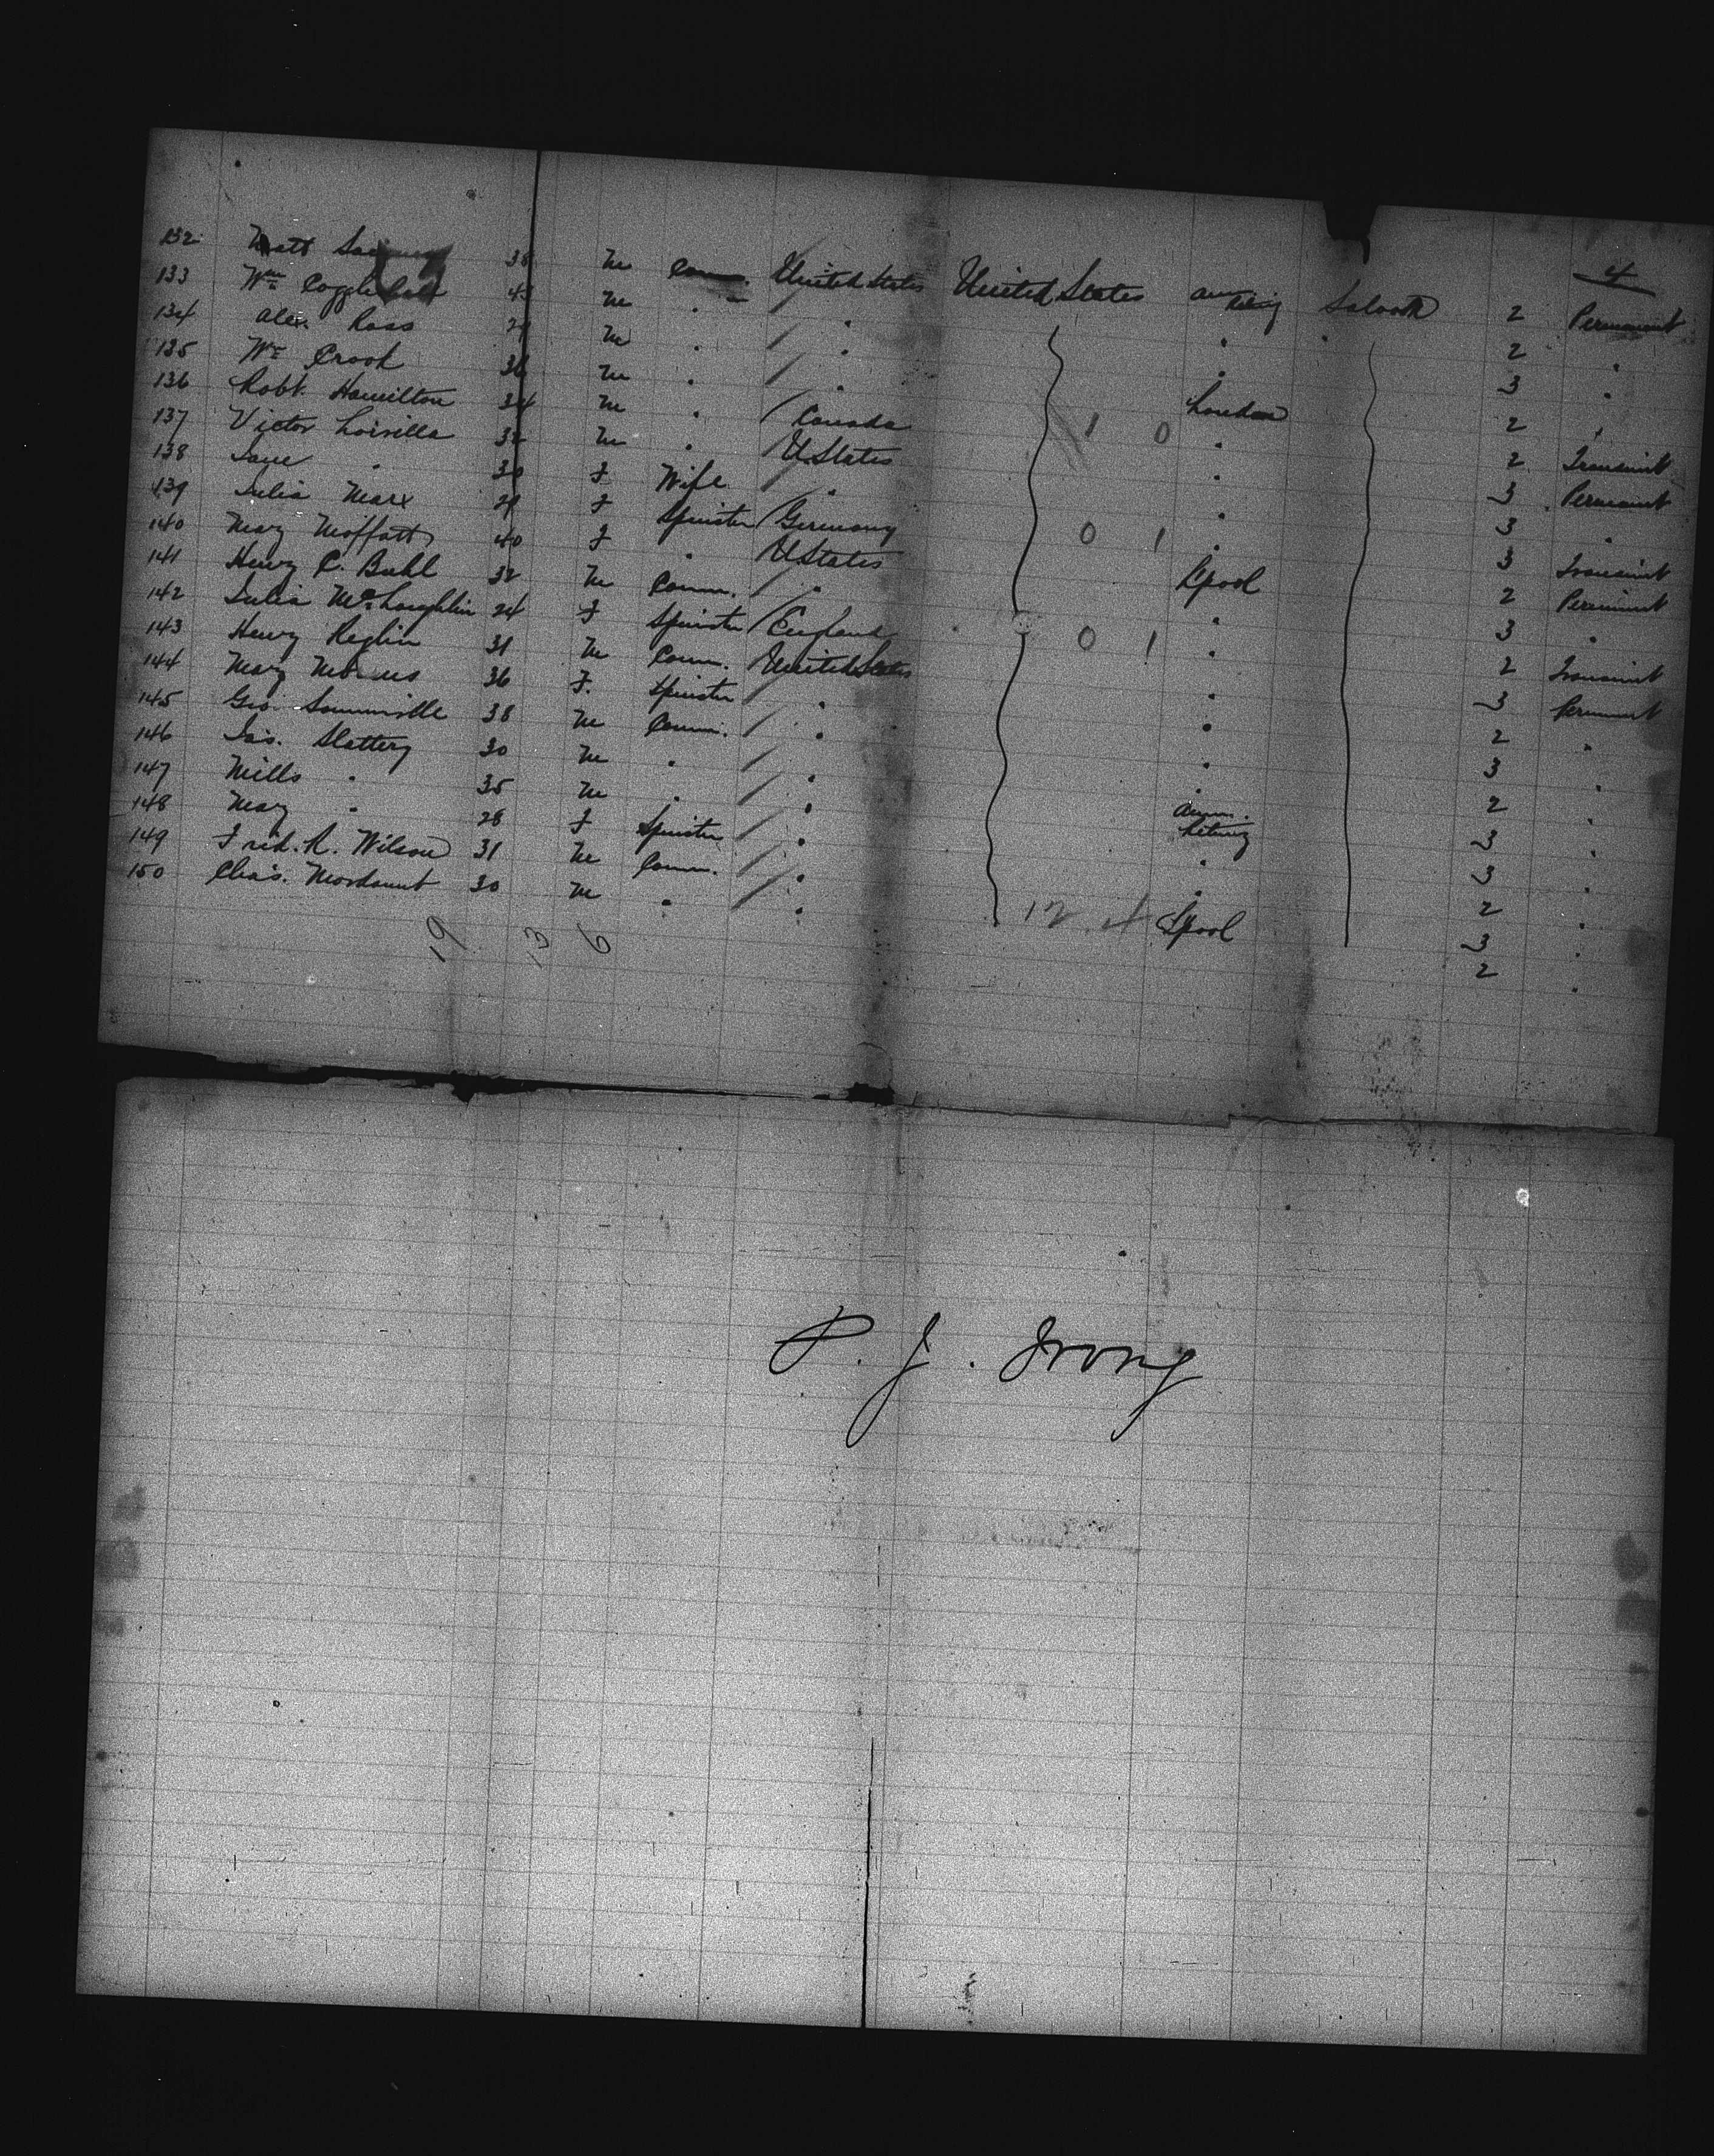 4
132 Matt 38 m Comm. United States United States Saloon 2 Permanent
133 Wm m " " " " 2 "
134 Alex. Ross 29 m " " " 3 "
135 Wm Crook 36 m " " London 2 "
136 Robt. Hamilton 34 m " Canada 1 0 " 2 Transint
137 Victor Loisilla 32 m " U.States " 3 Permanint
138 Jane " 30 f Wife " " 3 "
139 Julia Marx 29 f Spinster Germany 0 1 " 3 Transint
140 Mary Moffatt 40 f " U.States L'pool 2 Perminint
141 Henry C. Buhl 32 m Comm. " " 3 "
142 Julia McLoughlin 24 f Spinster England 0 1 " 2 Transint
143 Henry Reglin 31 m Comm. United States " 3 Permint
144 Mary 36 f. Spinster " " 2 "
145 Geo. Sommville 38 m Comm. " " 3 "
146 Jas. Slattery 30 m " " " 2 "
147 Mills " 35 m " " 3 "
148 Mary " 28 f Spinster " " 3 "
149 Fred. R. Wilson 31 m Comm. " " 2 "
150 Chas. Mordaunt 30 m " " L'pool 3 "
2 "
19 13 6 12 4
P. J. Irony